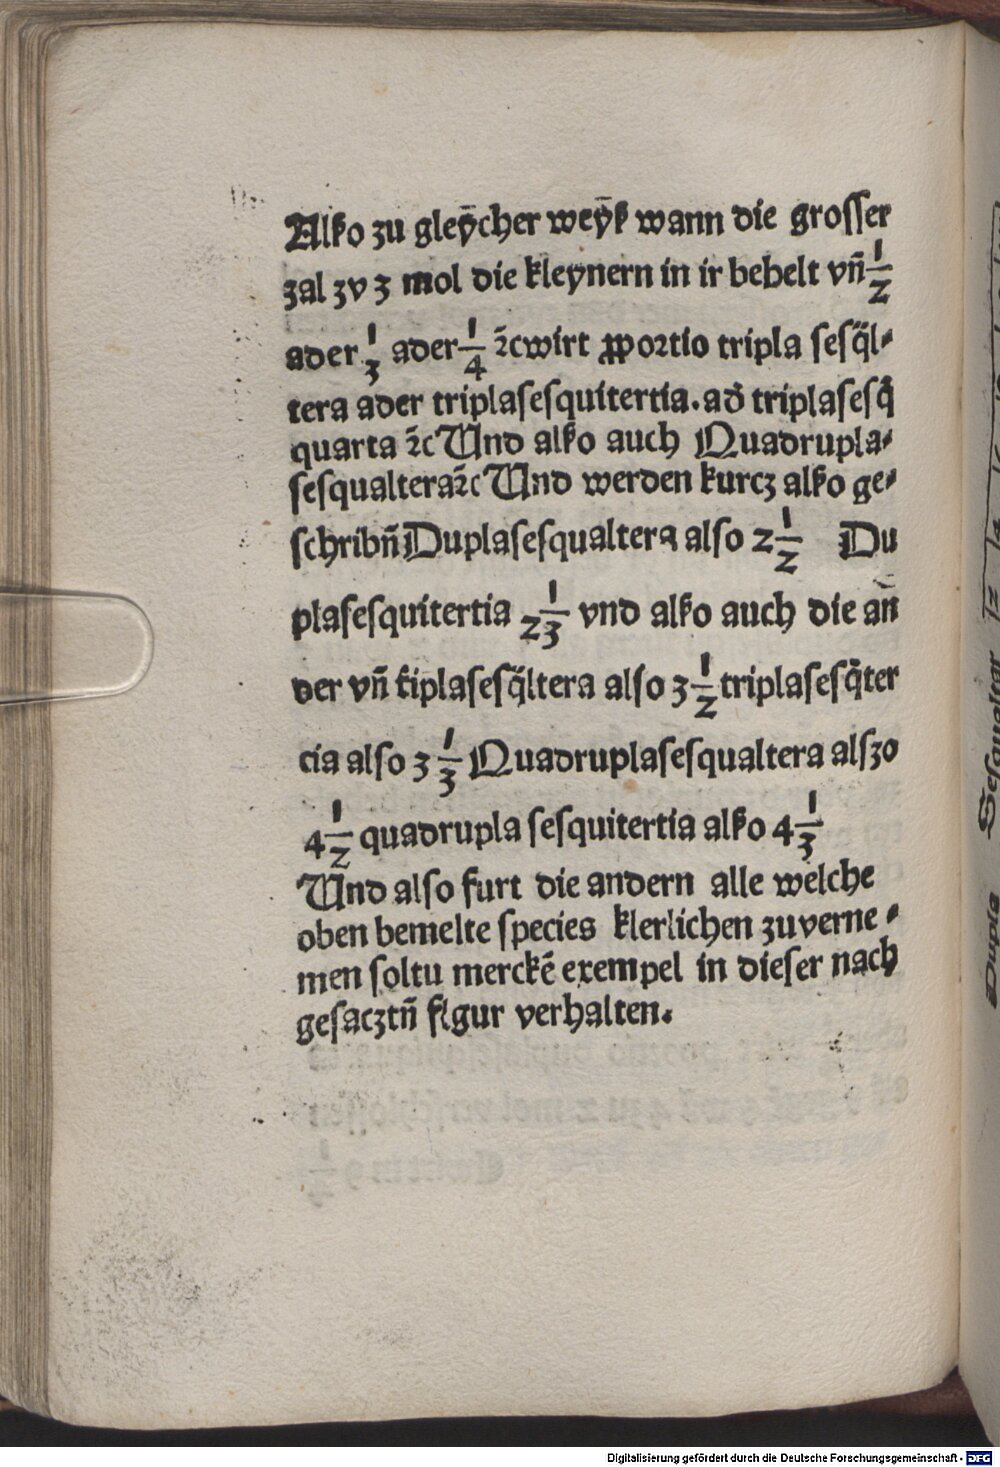 Alßo zu gleÿcher weÿß wann die grosser
zal zv 3 mol die kleynern in ir behelt vn̄ 1/2
ader 1/3 ader 1/4 ꝛc̄ wirt ꝓportio tripla sesq̄l⸗
tera ader triplasesquitertia. ad̄ triplasesq̄
quarta ꝛc̄ Vnd alßo auch Quadrupla⸗
sesqualtera ꝛc̄ Vnd werden kurcz alßo ge⸗
schribn̄ Duplasesqualtera also 2 1/2 Du
plasesquitertia 2 1/3 vnd alßo auch die an
der vn̄ t̄iplasesq̄ltera also 3 1/2 triplasesq̄ter
cia also 3 1/3 Quadruplasesqualtera alszo
4 1/2 quadrupla sesquitertia alßo 4 1/3
Vnd also furt die andern alle welche
oben bemelte species klerlichen zuverne⸗
men soltu merckē exempel in dieser nach
gesacztn̄ figur verhalten.
Dupla Sesqualter 12
Digitalisierung gefördert durch die Deutsche Forschungsgemeinschaft - DFG